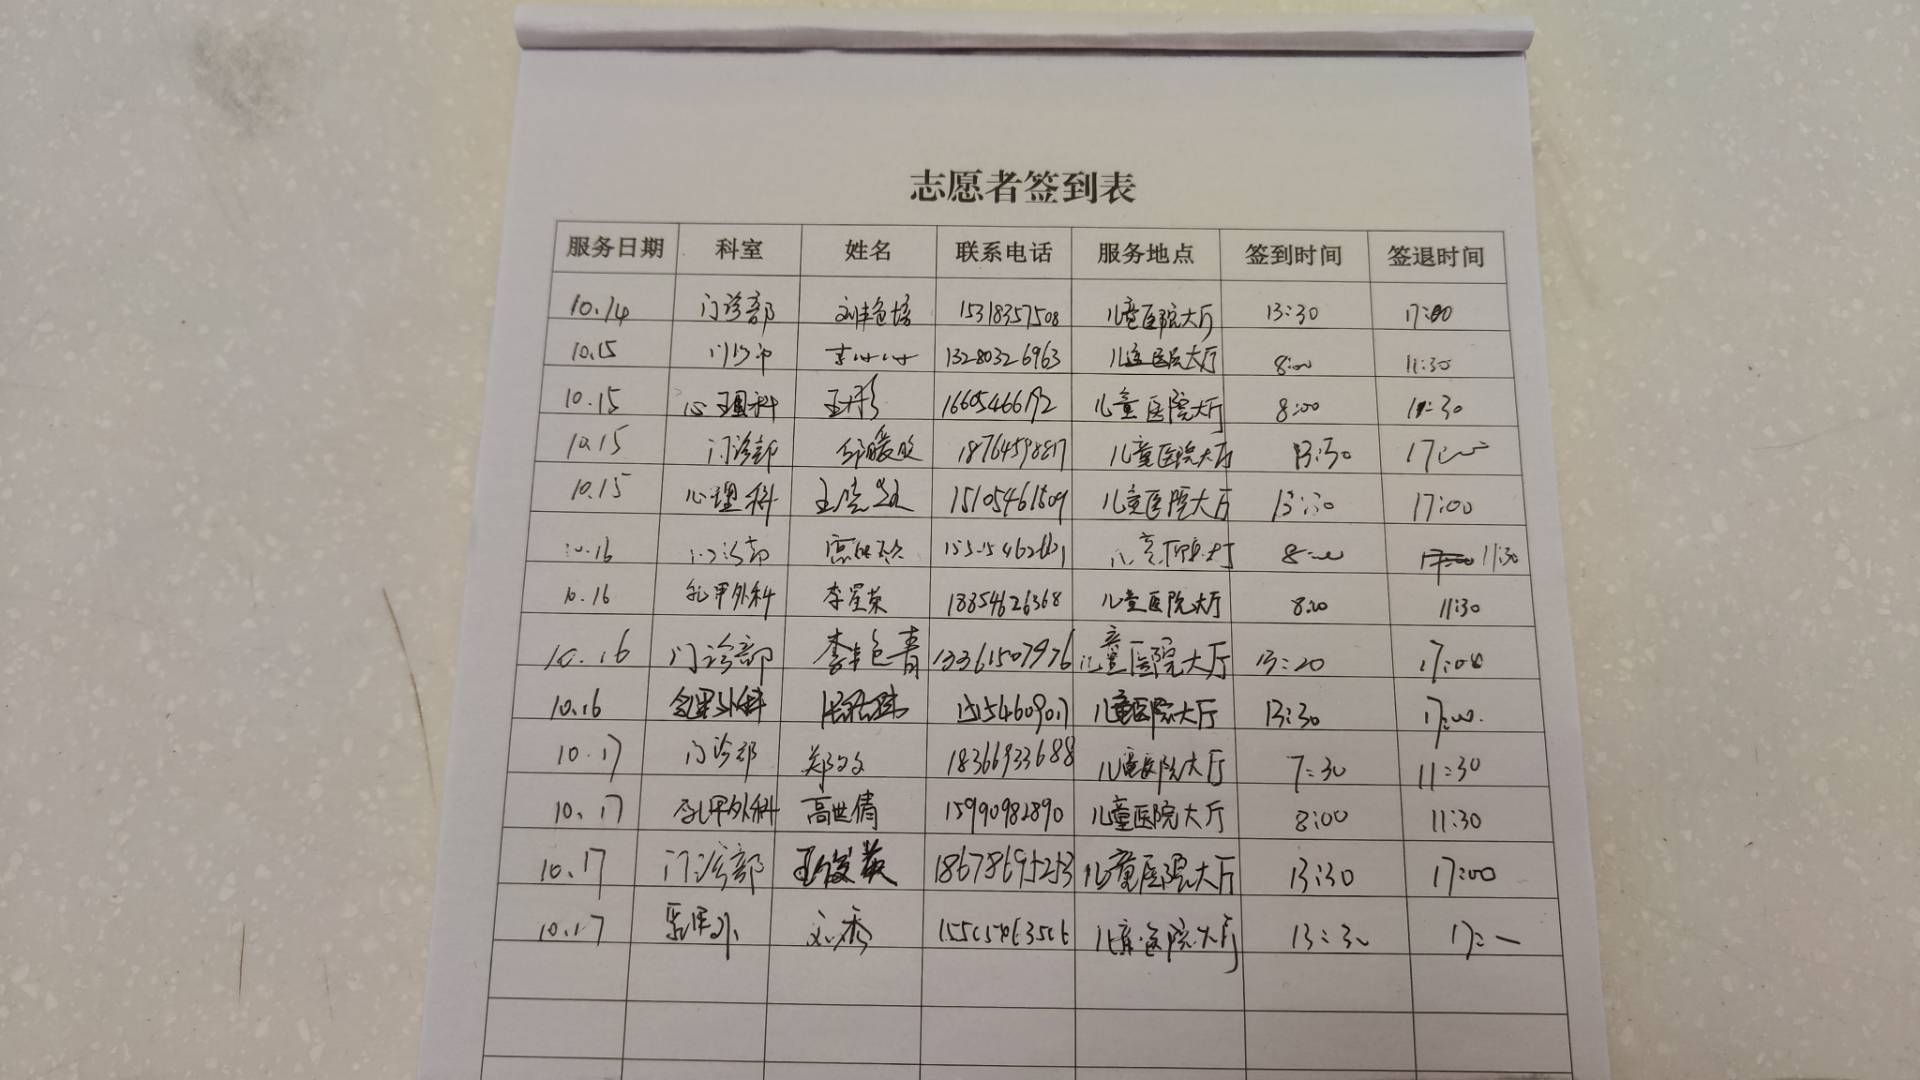 志愿者签到表
服务日期 科室 姓名 联系电话 服务地点 签到时间 签退时间
10.14 门诊部 刘艳培 15318357508 儿童医院大厅 13:30 17:00
10.15 门诊部 13280326963 儿童医院大厅 8:00 11:30
10.15 心理科 王彤 16605466192 儿童医院大厅 8:00 11:30
10.15 门诊部 18764598817 儿童医院大厅 13:30 17:00
10.15 心理科 15105461809 儿童医院大厅 13:30 17:00
10.16 门诊部 儿童医院大厅 8:00 11:30
10.16 乳甲外科 李星荣 18854626368 儿童医院大厅 8:00 11:30
10.16 门诊部 李艳青 13361507976 儿童医院大厅 13:20 17:00
10.16 乳甲外科 儿童医院大厅 13:30 17:00
10.17 门诊部 郑文文 18366933688 儿童医院大厅 7:30 11:30
10.17 乳甲外科 高世倩 15990982890 儿童医院大厅 8:00 11:30
10.17 门诊部 王俊英 18678695253 儿童医院大厅 13:30 17:00
10.17 乳甲外 刘秀 儿童医院大厅 13:30 17: